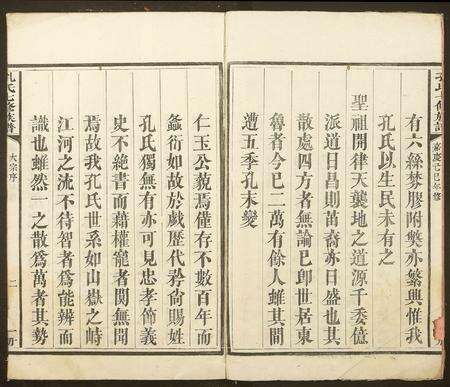 嘉慶己巳年修
有六絲棼膠附樊亦繁興惟我
孔氏以生民未有之
聖祖開律天襲地之道源千委億
派道日昌則苗裔亦日盛也其
散處四方者無論已卽世居東
魯者今已二萬有餘人雖其間
遭五季孔末變
仁玉公藐焉僅存不數百年而
螽衍如故於戲歷代矜尚賜姓
孔氏獨無有亦可見忠孝節義
史不絶書而藉權寵者闃無聞
焉故我孔氏世系如山嶽之峙
江河之流不待智者爲能辨而
識也雖然一之散爲萬者其勢
孔氏七修族譜
大宗序
二